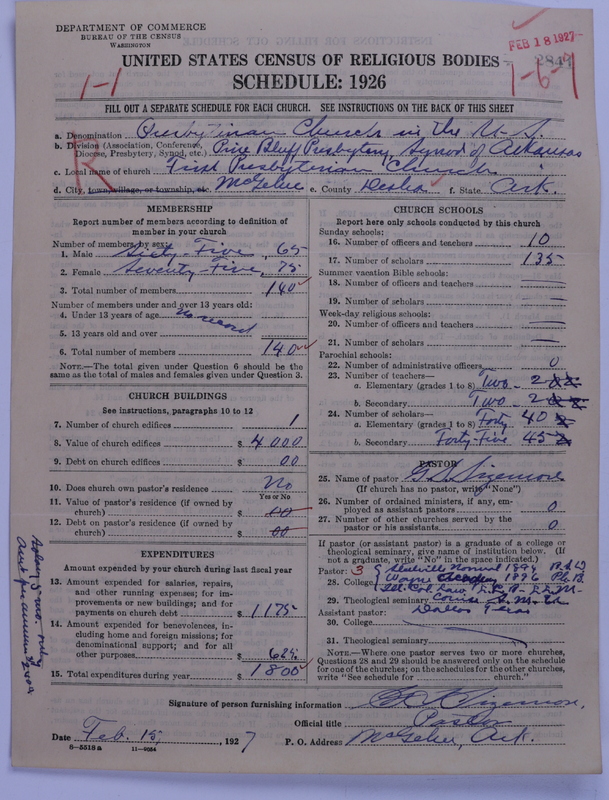 DEPARTMENT OF COMMERCE
BUREAU OF THE CENSUS
WASHINGTON
FEB 18 1927
2849
1-6-7
1-1
UNITED STATES CENSUS OF RELIGIOUS BODIES
SCHEDULE: 1926
FILL OUT A SEPARATE SCHEDULE FOR EACH CHURCH. SEE INSTRUCTIONS ON THE BACK OF THIS SHEET
a. Denomination Presbyterian Church in the U.S.
b. Division (Association, Conference, Diocese, Presbytery, Synod, etc.) Pine Bluff Presbytery, Synod of Arkansas
c. Local name of church First Presbyterian Church
d. City, town, village, or township, etc. McGehee e. County Desha f. State Ark.
R
MEMBERSHIP
Report number of members according to definition of member in your church
Number of members by sex:
1. Male Sixty-Five, 65
2. Female Seventy-Five, 75
3. Total number of members 140
Number of members under and over 13 years old:
4. Under 13 years of age no record
5. 13 years old and over
6. Total number of members 140
NOTE.—The total given under Question 6 should be the same as the total of males and females given under Question 3.
CHURCH BUILDINGS
See instructions, paragraphs 10 to 12
7. Number of church edifices 1
8. Value of church edifices $ 4000
9. Debt on church edifices $ 00
10. Does church own pastor's residence No
Yes or No
11. Value of pastor's residence (if owned by church) $ 00
12. Debt on pastor's residence (if owned by church) $ 00
EXPENDITURES
Amount expended by your church during last fiscal year
13. Amount expended for salaries, repairs, and other running expenses; for improvements or new buildings; and for payments on church debt $ 1175
14. Amount expended for benevolences, including home and foreign missions; for denominational support; and for all other purposes $ 625
15. Total expenditures during year $ 1800
CHURCH SCHOOLS
Report here only schools conducted by this church
Sunday schools:
16. Number of officers and teachers 10
17. Number of scholars 135
Summer vacation Bible schools:
18. Number of officers and teachers —
19. Number of scholars —
Week-day religious schools:
20. Number of officers and teachers —
21. Number of scholars —
Parochial schools:
22. Number of administrative officers 0
23. Number of teachers—
a. Elementary (grades 1 to 8) Two - 2
b. Secondary Two - 2
24. Number of scholars—
a. Elementary (grades 1 to 8) Forty 40
b. Secondary Forty-Five 45
PASTOR
25. Name of pastor G. S. Sizemore
(If church has no pastor, write "None")
26. Number of ordained ministers, if any, employed as assistant pastors 0
27. Number of other churches served by the pastor or his assistants 0
If pastor (or assistant pastor) is a graduate of a college or theological seminary, give name of institution below. (If not a graduate, write "No" in the space indicated.)
Pastor: 3
28. College Normal 1896
Academy 1896 Ph. B.
29. Theological seminary
Assistant pastor: Dallas Texas
30. College
31. Theological seminary
NOTE.—Where one pastor serves two or more churches, Questions 28 and 29 should be answered only on the schedule for one of the churches; on the schedules for the other churches, write "See schedule for church."
Signature of person furnishing information Sizemore,
Official title Pastor
Date Feb. 15, 1927 P. O. Address McGehee, Ark.
8—5518a 11—9054